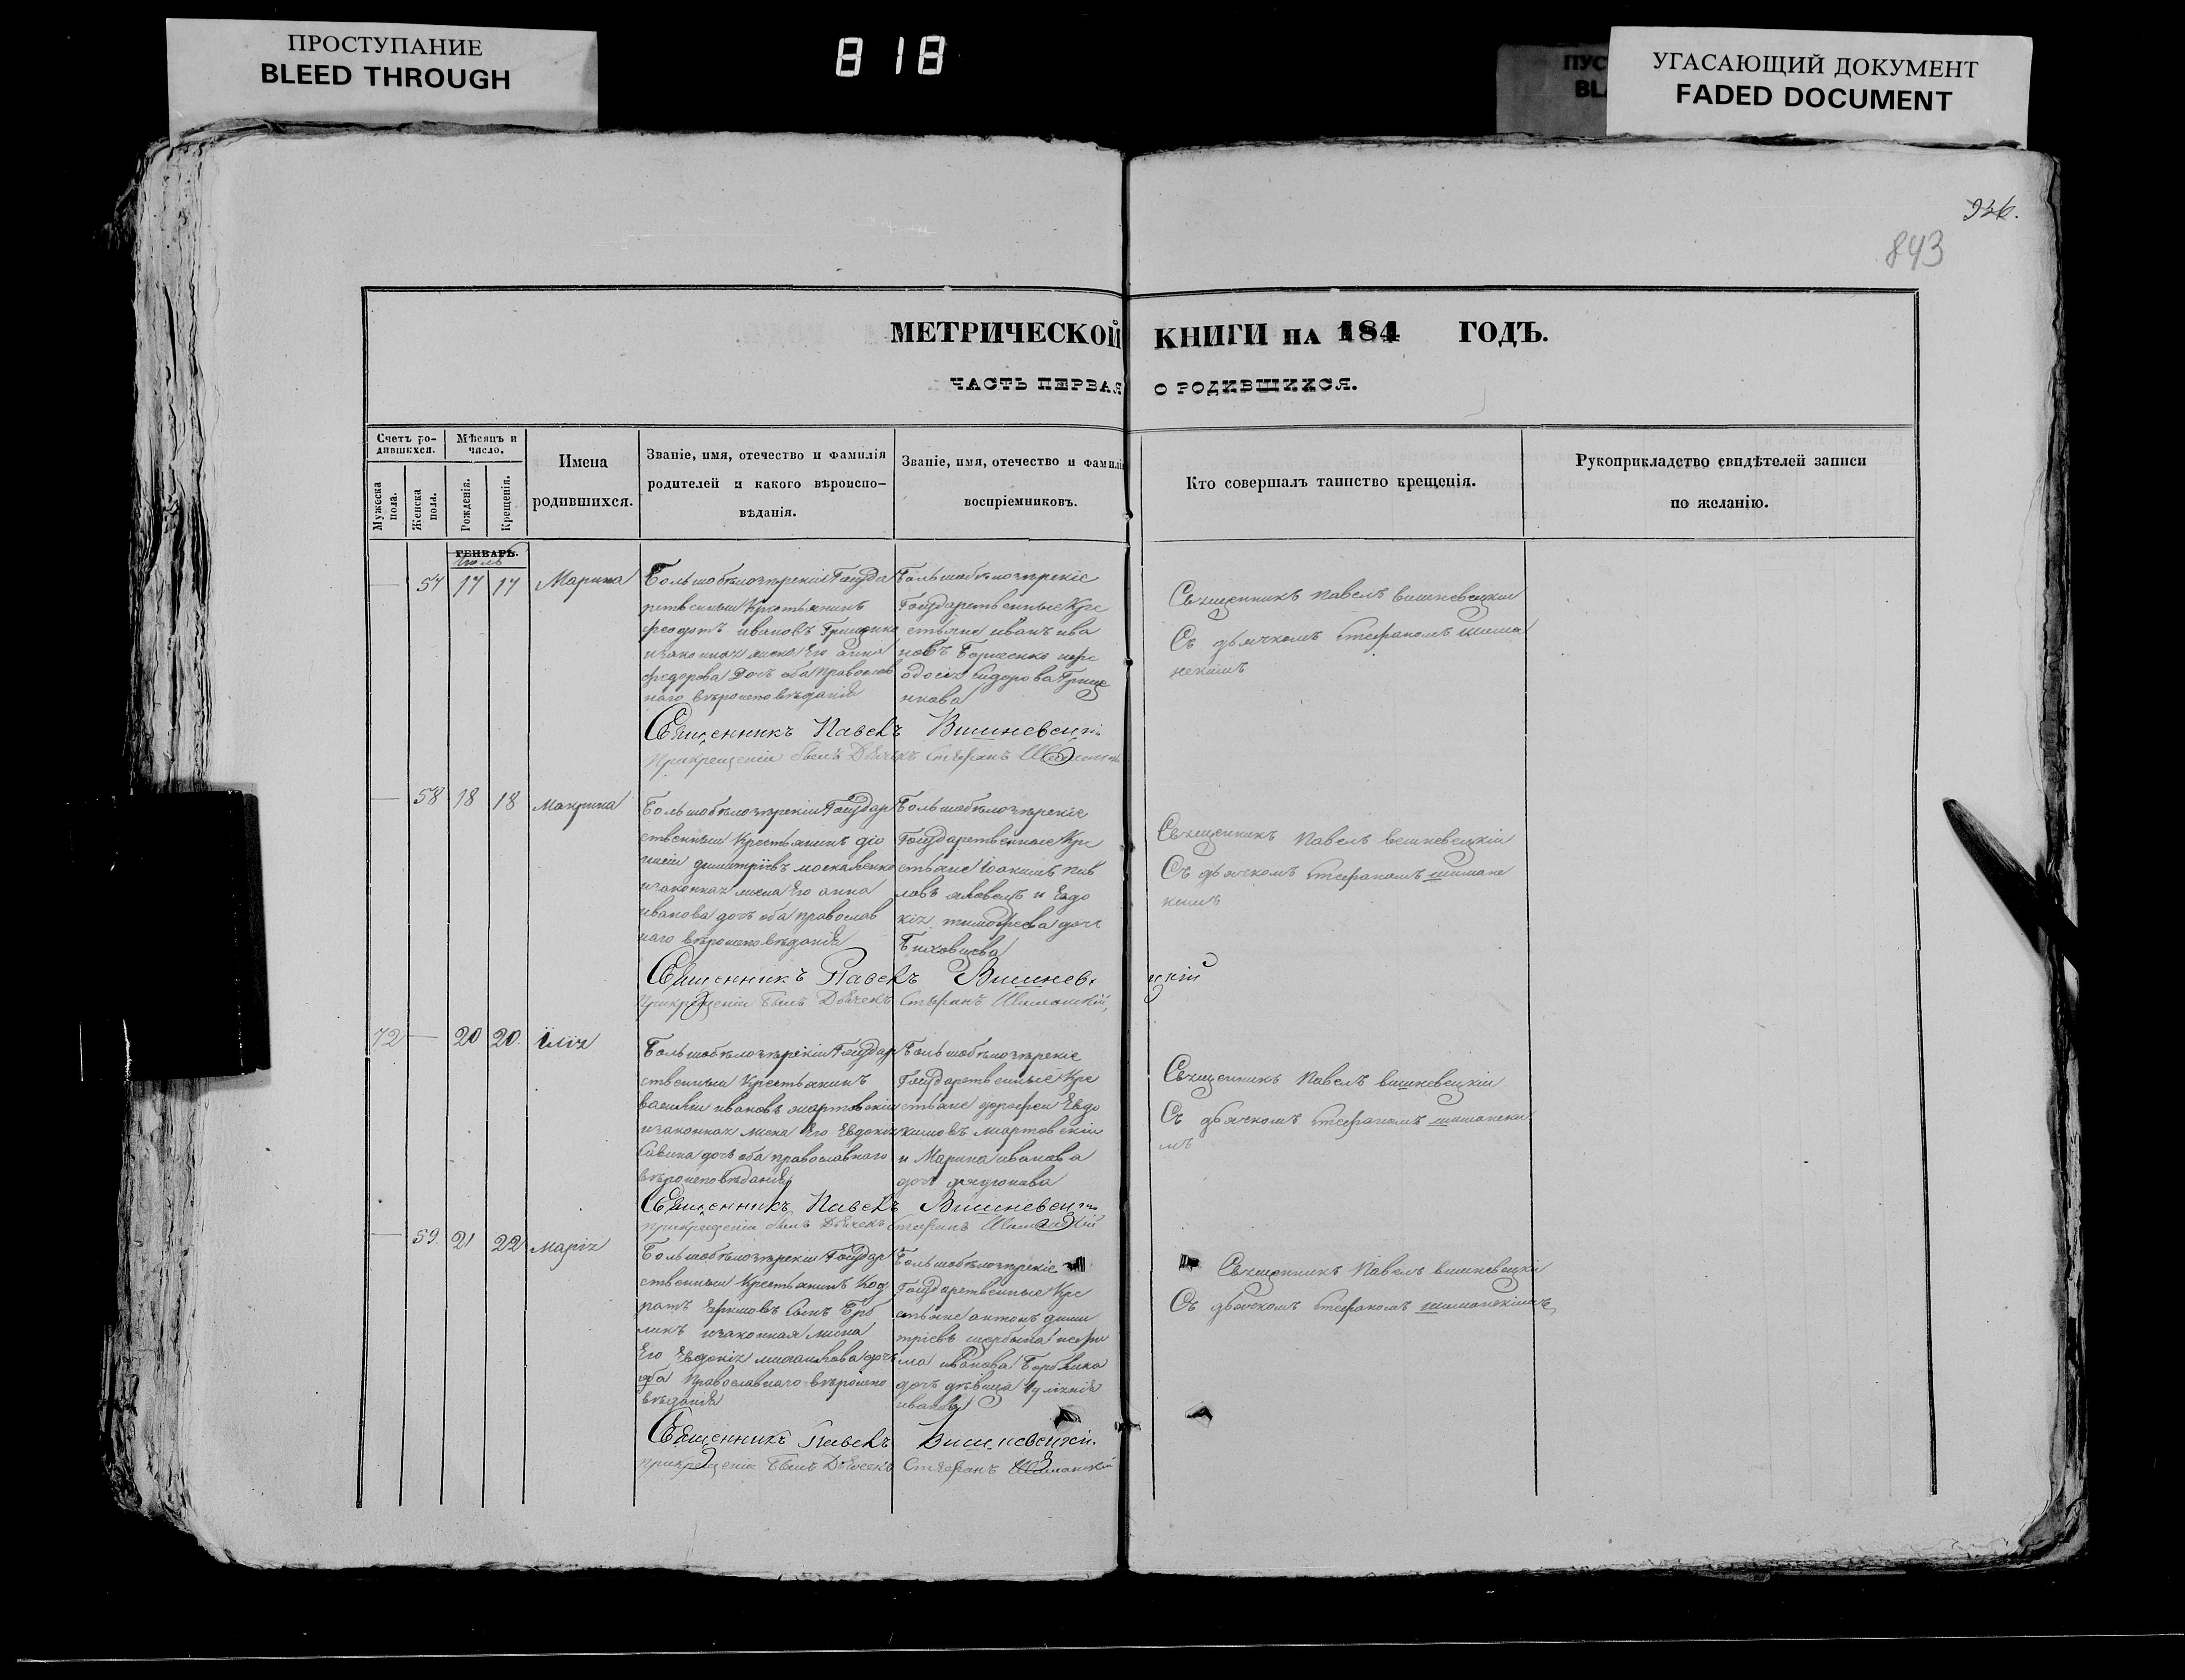 ПРОСТУПАНИЕ
BLEED THROUGH
818
ПУС
BLA
УГАСАЮЩИЙ ДОКУМЕНТ
FADED DOCUMENT
926.
843
МЕТРИЧЕСКОЙ КНИГИ НА 184 ГОДЪ.
ЧАСТЬ ПЕРВАЯ О РОДИВШИХСЯ.
Счетъ ро-
дившихся.
Мужеска
пола.
Женска
пола.
Мѣсяцъ и
число.
Рожденія.
Крещенія.
Имена
родившихся.
Званіе, имя, отечество и фамилія
родителей и какого вѣроиспо-
вѣданія.
Званіе, имя, отечество и фамилі
воспріемниковъ.
Кто совершалъ таинство крещенія.
Рукоприкладство свидѣтелей записи
по желанію.
ГЕНВАРЬ.
Іюль
57 17 17 Марина
Большобѣлозѣрскій Государ
ственный Крестьянинъ
феодотъ ивановъ Грищенко
изаконная жена Его анна
федорова Дочь оба Православ
наго вѣроисповѣданія
Большобѣлозѣрскіе
Государственные Кре
стьяне иванъ ива
новъ
одосія Сидорова Грище
нкова
Священникъ павелъ вишневецкій
Съ дьячкомъ Стефаномъ шима
нскимъ
Священникъ Павелъ Вишневецкі
Прикрещеніи былъ Дьячекъ Стефанъ
58 18 18 Макрина
Большобѣлозѣрскій Государ
ственный Крестьянинъ діо
нисій димитріевъ москаленко
изаконная жена Его анна
иванова дочь оба православ
наго вѣроисповѣданія
Большобѣлозѣрскіе
Государственные Кре
стьяне Іоакимъ пав
ловъ яковецъ и Евдо
кія тимофеева дочь
Священникъ павелъ вишневецкій
Съ дьячкомъ Стефаномъ шиманс
кимъ
Священникъ Павелъ Вишнев
цкій
Прикрещеніи былъ Дьячекъ Стефанъ Шиманскій,
72 20 20. Илія
Большобѣлозѣрскій Государ
ственный Крестьянинъ
василій ивановъ мартовскій
изаконная жена Его Евдокія
Савина дочь оба православнаго
вѣроисповѣданія
Большобѣлозѣрскіе
Государственные Кре
стьяне дорофей Евдо
кимовъ мартовскій
и Марина иванова
дочь
Священникъ павелъ вишневецкій
Съ дьячкомъ Стефаномъ шимански
мъ
Священникъ Павелъ Вишневецкі
Прикрещеніи былъ Дьячекъ Стефанъ Шиманскій
59. 21 22 марія
Большобѣлозѣрскій Государ
ственный Крестьянинъ Код
ратъ Ефимовъ сынъ
изаконная жена
Его Евдокія дочь
оба Православнаго вѣроиспо
вѣданія
Большобѣлозѣрскіе
Государственные Кре
стьяне антонъ дими
тріевъ щербина
иванова
дочь дѣвица
иванова
Священникъ павелъ вишневецкі
Съ дьячкомъ Стефаномъ шиманскимъ,
Священникъ Павелъ Вишневецкій.
Прикрещеніи былъ Дьячекъ Стефанъ Шиманскій